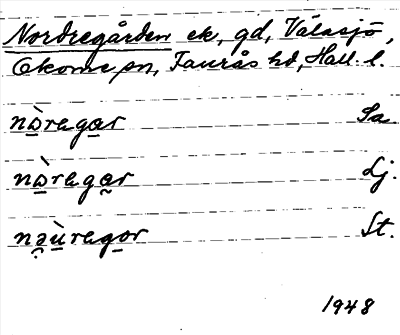 Nordregården ek, gd, Välasjö,
Okome sn, Faurås hd, Hall. l.
nòregar Sa
nòregar Lj.
nəùregor St.
1948